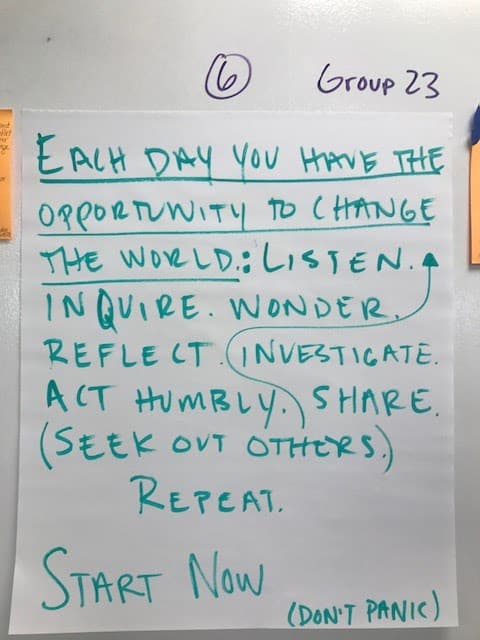 6 Group 23
EACH DAY YOU HAVE THE
OPPORTUNITY TO CHANGE
THE WORLD.: LISTEN.
INQUIRE. WONDER.
REFLECT. INVESTIGATE.
ACT HUMBLY. SHARE.
(SEEK OUT OTHERS.)
REPEAT.
START NOW
(DON'T PANIC)